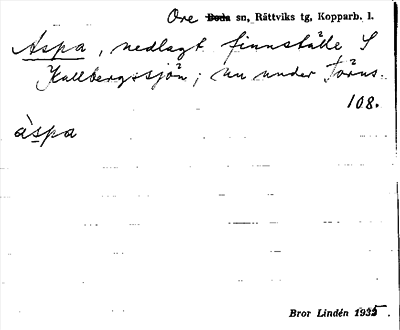 Ore Boda sn, Rättviks tg, Kopparb. l.
Aspa, nedlagt finnställe S
Kallbergssjön; nu under Torns-
108.
àspa
Bror Lindén 1935.